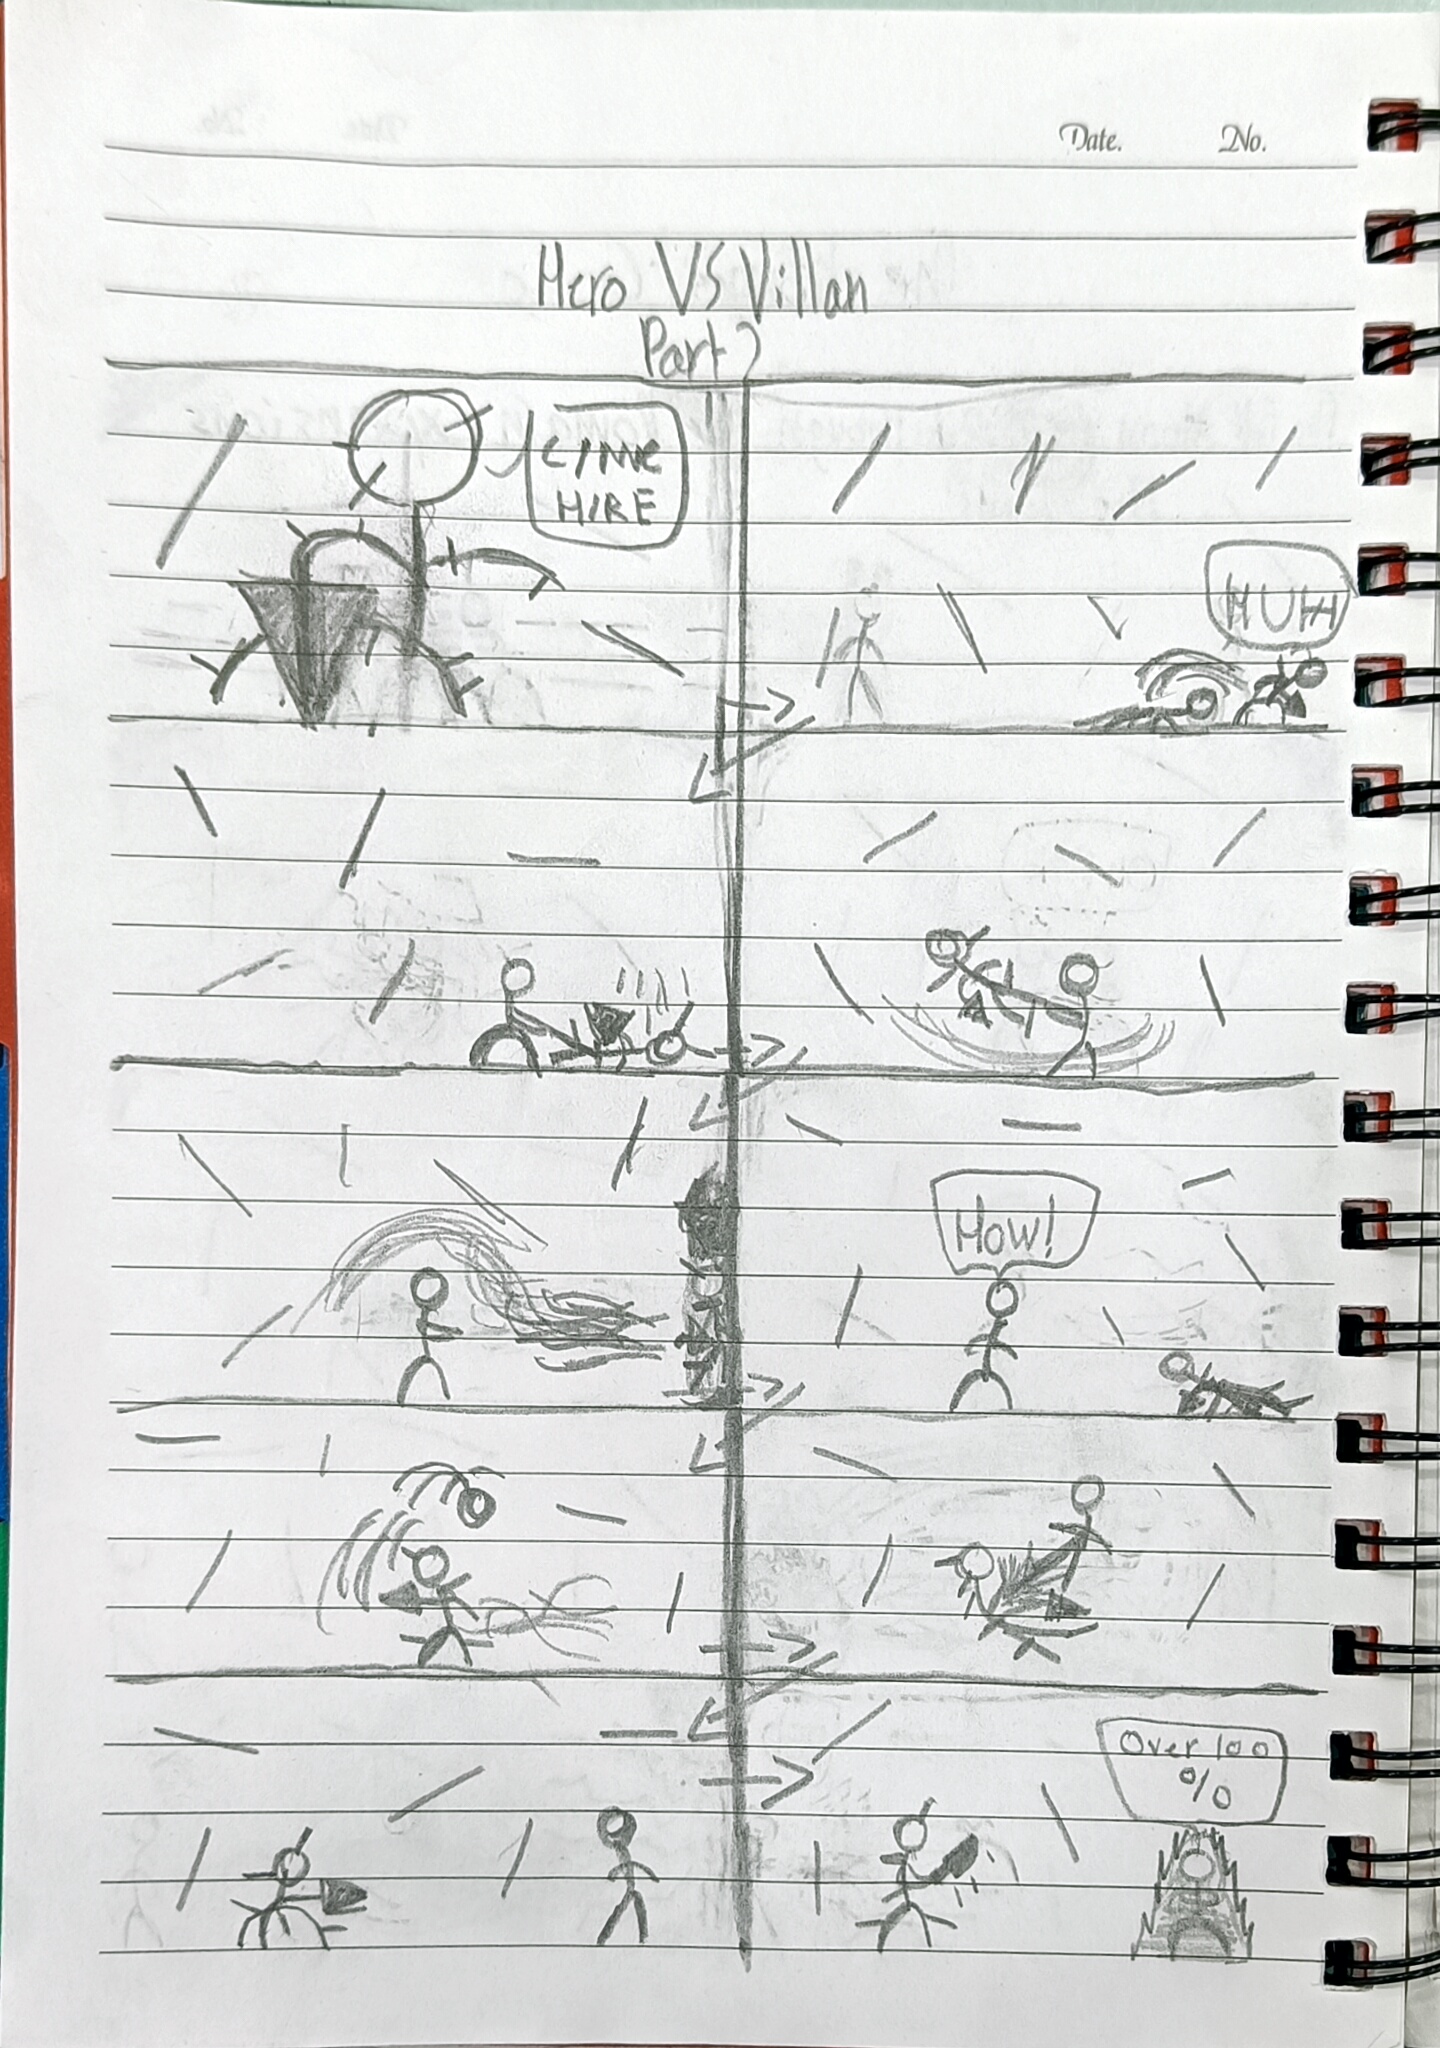 Date. No.
Hero VS Villan
Part 2
HIRE
HUH
How!
Over 100
%